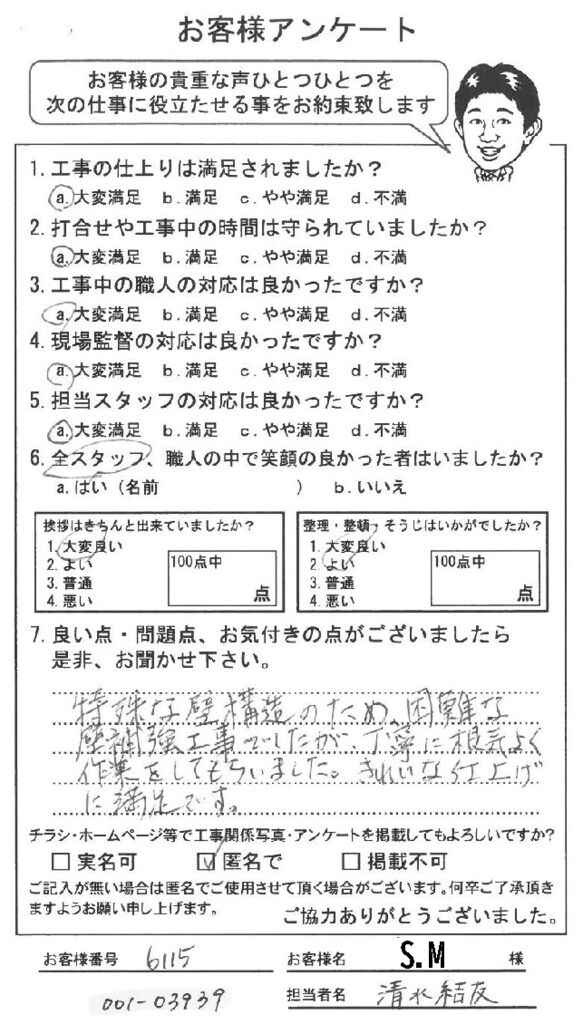 お客様アンケート
お客様の貴重な声ひとつひとつを
次の仕事に役立たせる事をお約束致します
1. 工事の仕上りは満足されましたか？
a. 大変満足 b. 満足 c. やや満足 d. 不満
2. 打合せや工事中の時間は守られていましたか？
a. 大変満足 b. 満足 c. やや満足 d. 不満
3. 工事中の職人の対応は良かったですか？
a. 大変満足 b. 満足 c. やや満足 d. 不満
4. 現場監督の対応は良かったですか？
a. 大変満足 b. 満足 c. やや満足 d. 不満
5. 担当スタッフの対応は良かったですか？
a. 大変満足 b. 満足 c. やや満足 d. 不満
6. 全スタッフ、職人の中で笑顔の良かった者はいましたか？
a. はい（名前 ） b. いいえ
挨拶はきちんと出来ていましたか？
1. 大変良い
2. よい
3. 普通
4. 悪い
100点中
点
整理・整頓・そうじはいかがでしたか？
1. 大変良い
2. よい
3. 普通
4. 悪い
100点中
点
7. 良い点・問題点、お気付きの点がございましたら
是非、お聞かせ下さい。
特殊な壁構造のため、困難な
壁補強工事でしたが、丁寧に根気よく
作業をしてもらいました。きれいな仕上げ
に満足です。
チラシ・ホームページ等で工事関係写真・アンケートを掲載してもよろしいですか？
□ 実名可 ☑ 匿名で □ 掲載不可
ご記入が無い場合は匿名でご使用させて頂く場合がございます。何卒ご了承頂き
ますようお願い申し上げます。
ご協力ありがとうございました。
お客様番号 6115
お客様名 S.M 様
001-03939
担当者名 清水結友